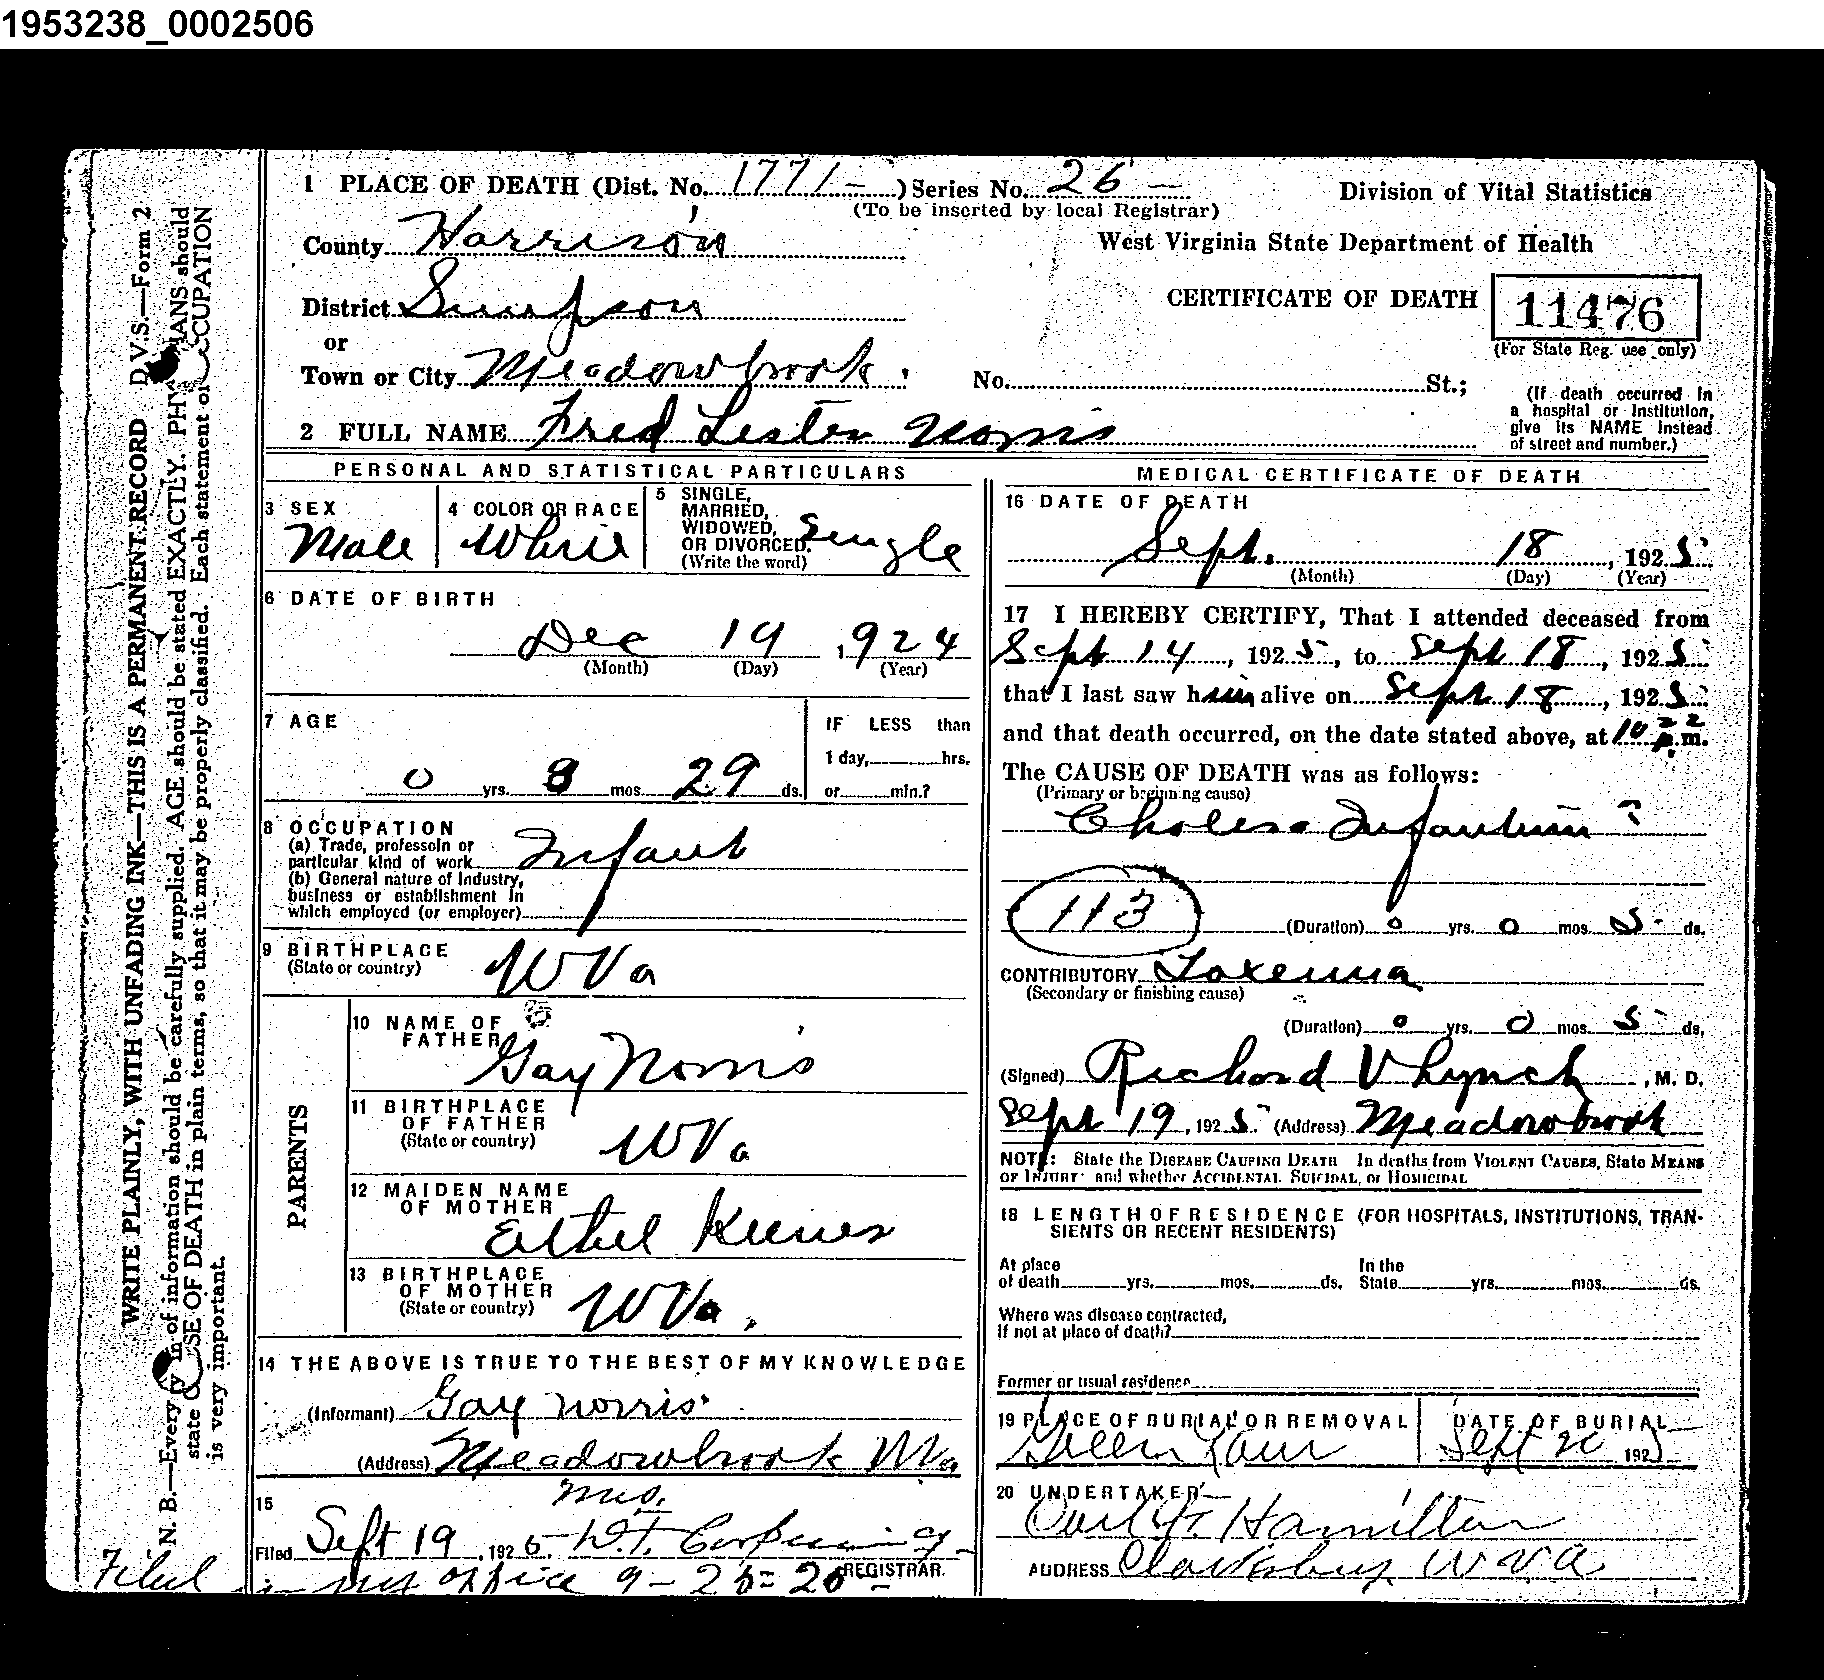 1953238_0002506
1 PLACE OF DEATH (Dist. No. 1771- ) Series No. 26 -
(To be inserted by local Registrar)
Division of Vital Statistics
County Harrison
West Virginia State Department of Health
District Simpson
CERTIFICATE OF DEATH 11476
(For State Reg. use only)
or
Town or City Meadowbrook. No. St.;
(If death occurred in
a hospital or institution,
give its NAME instead
of street and number.)
2 FULL NAME Fred Lester Norris
PERSONAL AND STATISTICAL PARTICULARS
3 SEX
Male
4 COLOR OR RACE
White
5 SINGLE,
MARRIED,
WIDOWED,
OR DIVORCED.
(Write the word)
Single
6 DATE OF BIRTH
Dec 19, 1924
(Month) (Day) (Year)
7 AGE
0 yrs. 8 mos. 29 ds.
IF LESS than
1 day, hrs.
or min.?
8 OCCUPATION
(a) Trade, professoin or
particular kind of work Infant
(b) General nature of Industry,
business or establishment in
which employed (or employer)
9 BIRTHPLACE
(State or country) W Va
PARENTS
10 NAME OF
FATHER Gay Norris
11 BIRTHPLACE
OF FATHER
(State or country) W Va
12 MAIDEN NAME
OF MOTHER Ethel
13 BIRTHPLACE
OF MOTHER
(State or country) W Va.
14 THE ABOVE IS TRUE TO THE BEST OF MY KNOWLEDGE
(Informant) Gay Norris
(Address) Meadowbrook W Va
15
Mrs.
Filed Sept 19, 1925. W.T.
REGISTRAR.
Filed in my office 9-25-25
MEDICAL CERTIFICATE OF DEATH
16 DATE OF DEATH
Sept. 18, 1925
(Month) (Day) (Year)
17 I HEREBY CERTIFY, That I attended deceased from
Sept 14, 1925, to Sept 18, 1925
that I last saw him alive on Sept 18, 1925
and that death occurred, on the date stated above, at 10 p.m.
The CAUSE OF DEATH was as follows:
(Primary or beginning cause)
Cholera Infantum
113
(Duration) 0 yrs. 0 mos. 5 ds.
CONTRIBUTORY Toxemia
(Secondary or finishing cause)
(Duration) 0 yrs. 0 mos. 5 ds.
(Signed) Richard V Lynch, M. D.
Sept 19, 1925. (Address) Meadowbrook
NOTE: State the DISEASE CAUSING DEATH In deaths from VIOLENT CAUSES, State MEANS
OF INJURY and whether ACCIDENTAL SUICIDAL, or HOMICIDAL
18 LENGTH OF RESIDENCE (FOR HOSPITALS, INSTITUTIONS, TRAN-
SIENTS OR RECENT RESIDENTS)
At place
of death yrs. mos. ds.
In the
State yrs. mos. ds.
Where was disease contracted,
If not at place of death?
Former or usual residence
19 PLACE OF BURIAL OR REMOVAL
DATE OF BURIAL
Sept 20 1925
20 UNDERTAKER
Hamilton
ADDRESS Clarksburg W Va
D.V.S.—Form 2
WRITE PLAINLY, WITH UNFADING INK—THIS IS A PERMANENT RECORD
N. B.—Every item of information should be carefully supplied. AGE should be stated EXACTLY. PHYSICIANS should
state CAUSE OF DEATH in plain terms, so that it may be properly classified. Each statement of OCCUPATION
is very important.